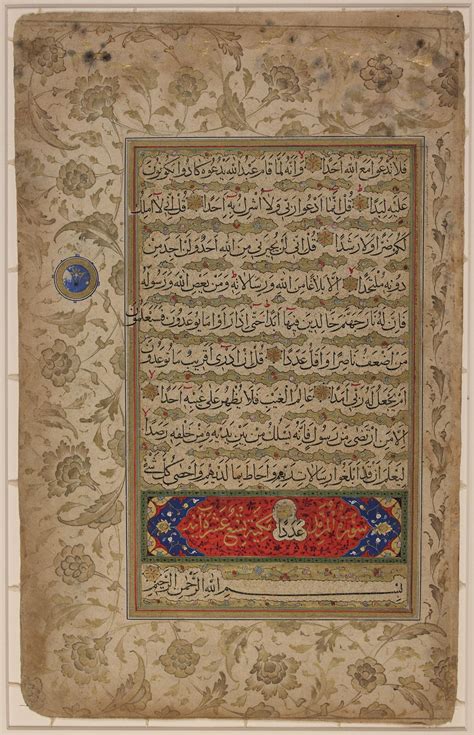 فلا تدعوا مع الله احدا وانه لما قام عبد الله يدعوه كادوا يكونون
عليه لبدا قل انما ادعوا ربي ولا اشرك به احدا قل اني لا املك
لكم ضرا ولا رشدا قل اني لن يجيرني من الله احد ولن اجد من
دونه ملتحدا الا بلاغا من الله ورسالاته ومن يعص الله ورسوله
فان له نار جهنم خالدين فيها ابدا حتى اذا راوا ما يوعدون فسيعلمون
من اضعف ناصرا واقل عددا قل ان ادري اقريب ما توعدون
ام يجعل له ربي امدا عالم الغيب فلا يظهر على غيبه احدا
الا من ارتضى من رسول فانه يسلك من بين يديه ومن خلفه رصدا
ليعلم ان قد ابلغوا رسالات ربهم واحاط بما لديهم واحصى كل شيء
سورة المزمل عددا مكية تسع عشرة آية
بسم الله الرحمن الرحيم